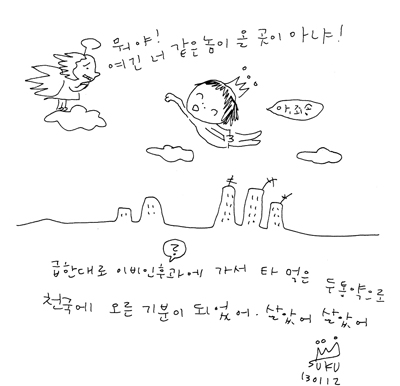 뭐야!
여긴 너 같은 놈이 올 곳이 아냐!
아, 죄송
?
급한대로 이비인후과에 가서 타 먹은 두통약으로
천국에 오른 기분이 되었어. 살았어 살았어
SUKU
130112